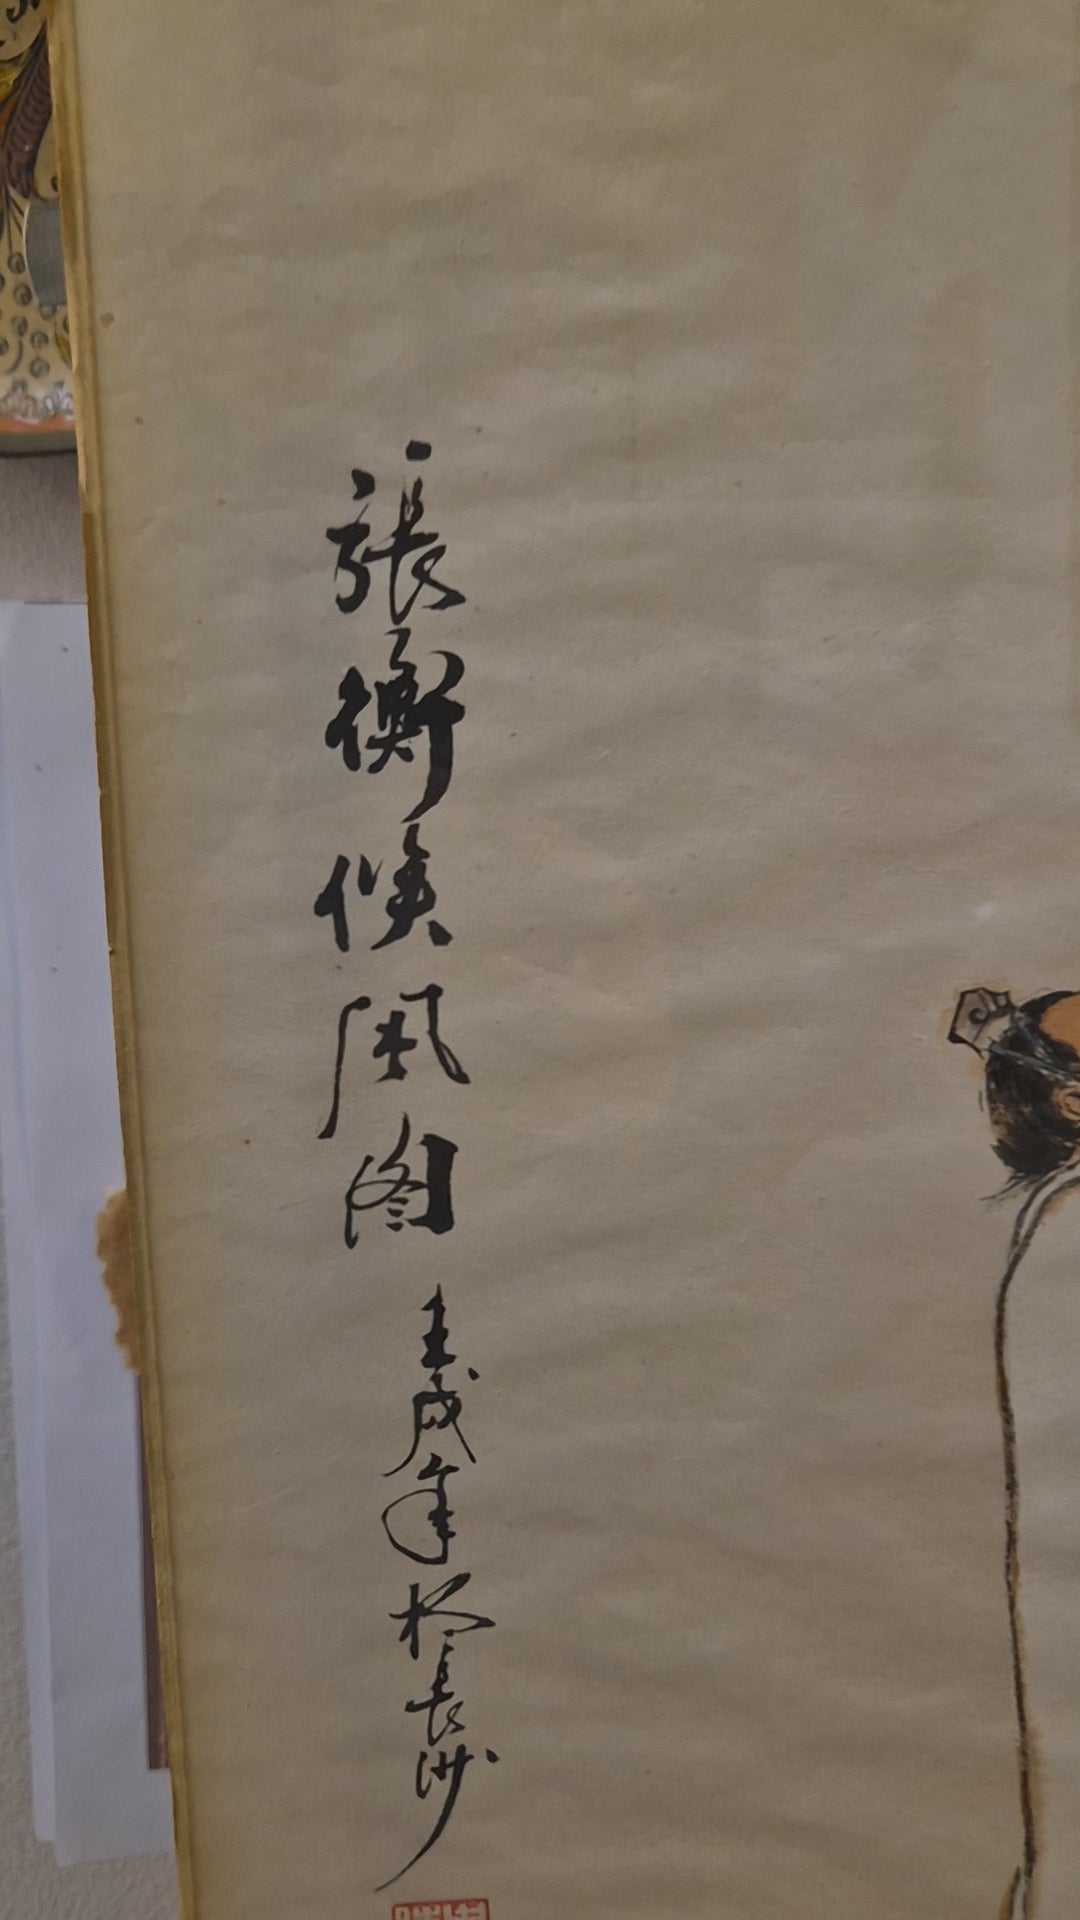 張衡候风图
壬戌年於長沙